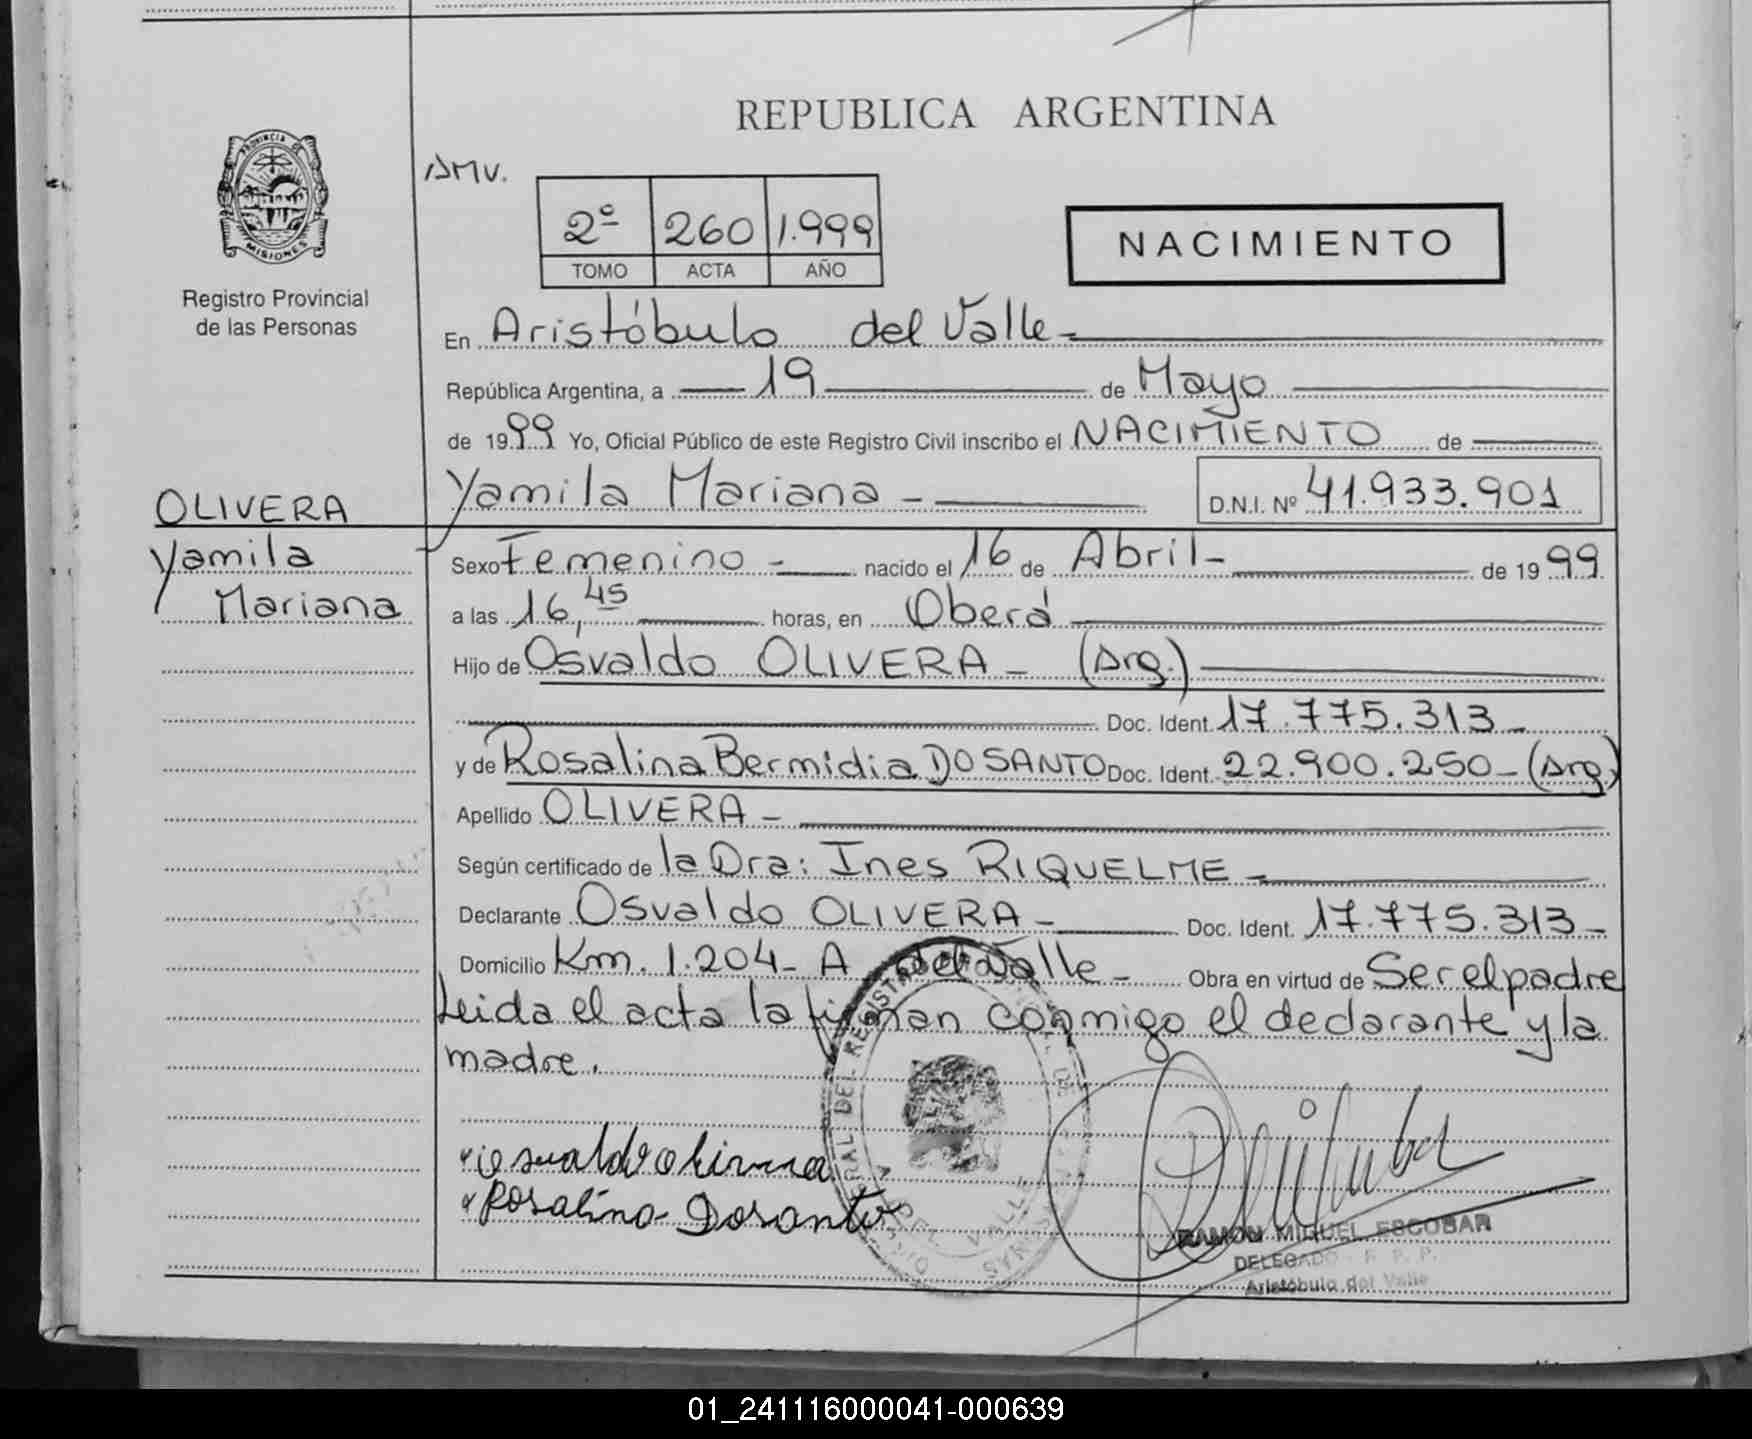 REPUBLICA ARGENTINA
PROVINCIA DE
MISIONES
Registro Provincial
de las Personas
AMV.
2º 260 1.999
TOMO ACTA AÑO
NACIMIENTO
En Aristóbulo del Valle-
República Argentina, a 19 de Mayo
de 1999 Yo, Oficial Público de este Registro Civil inscribo el NACIMIENTO de
Yamila Mariana - D.N.I. Nº 41.933.901
OLIVERA
Yamila
Mariana
Sexo Femenino - nacido el 16 de Abril- de 1999
a las 16,45 horas, en Oberá
Hijo de Osvaldo OLIVERA - (Arg.)
Doc. Ident. 17.775.313-
y de Rosalina Bermidia DO SANTO Doc. Ident. 22.900.250-(Arg.)
Apellido OLIVERA -
Según certificado de la Dra: Ines RIQUELME -
Declarante Osvaldo OLIVERA - Doc. Ident. 17.775.313-
Domicilio Km. 1.204- A. del Valle - Obra en virtud de Ser el padre
Leida el acta la firman conmigo el declarante y la
madre.
Osvaldo olivera
Rosalino Dosanto
RAMON MIGUEL ESCOBAR
DELEGADO - R. P. P.
Aristóbulo del Valle
01_241116000041-000639